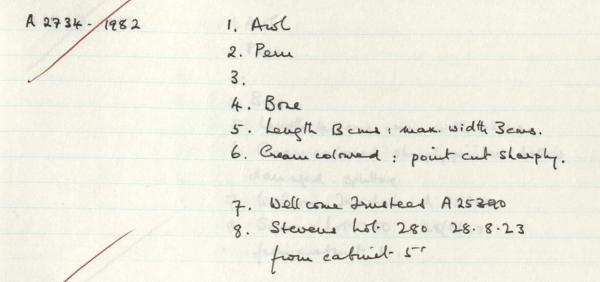 A 2734 - 1982
1. Awl
2. Peru
3.
4. Bone
5. Length 13 cms : max. width 3 cms.
6. Cream coloured : point cut sharply.
7. Wellcome Trustees A 25390
8. Stevens Lot. 280 28.8.23
from cabinet 5